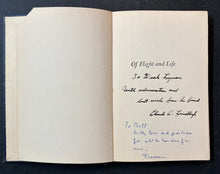 Of Flight and Life
To Deak Lyman
With admiration and
best wishes from his friend
Charles A. Lindbergh
To Bill
With love and gratitude
for all he has done for
me.